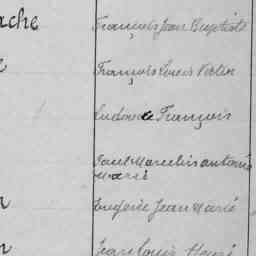 ache François Jean Baptiste
e François Louis Victin
Ludovic François
Paul Marcelin Antoine
Marie
n Eugène Jean Marie
n Jean Louis Henri